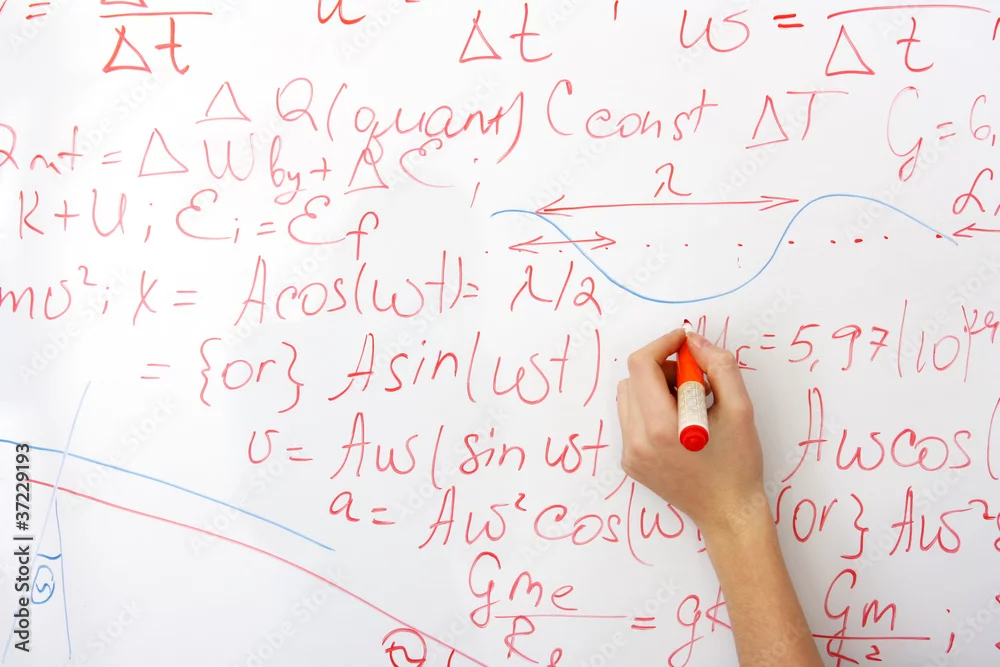 = Δt u = Δt ; ω = Δt
ΔQ(quant) (const ΔT G = 6,
Qnt = ΔW by + Δℰ ;
K + U ; ℰi = ℰf λ
mv² ; x = Acos(ωt) = λ/2
= {or} Asin(ωt) ; = 5,97 (10)²⁴
v = Aω(sin ωt) Aωcos(
a = Aω² cos(ω {or} Aω²
Gme / Re = g Gm / R² ;
Adobe Stock | #37229193
Adobe Stock